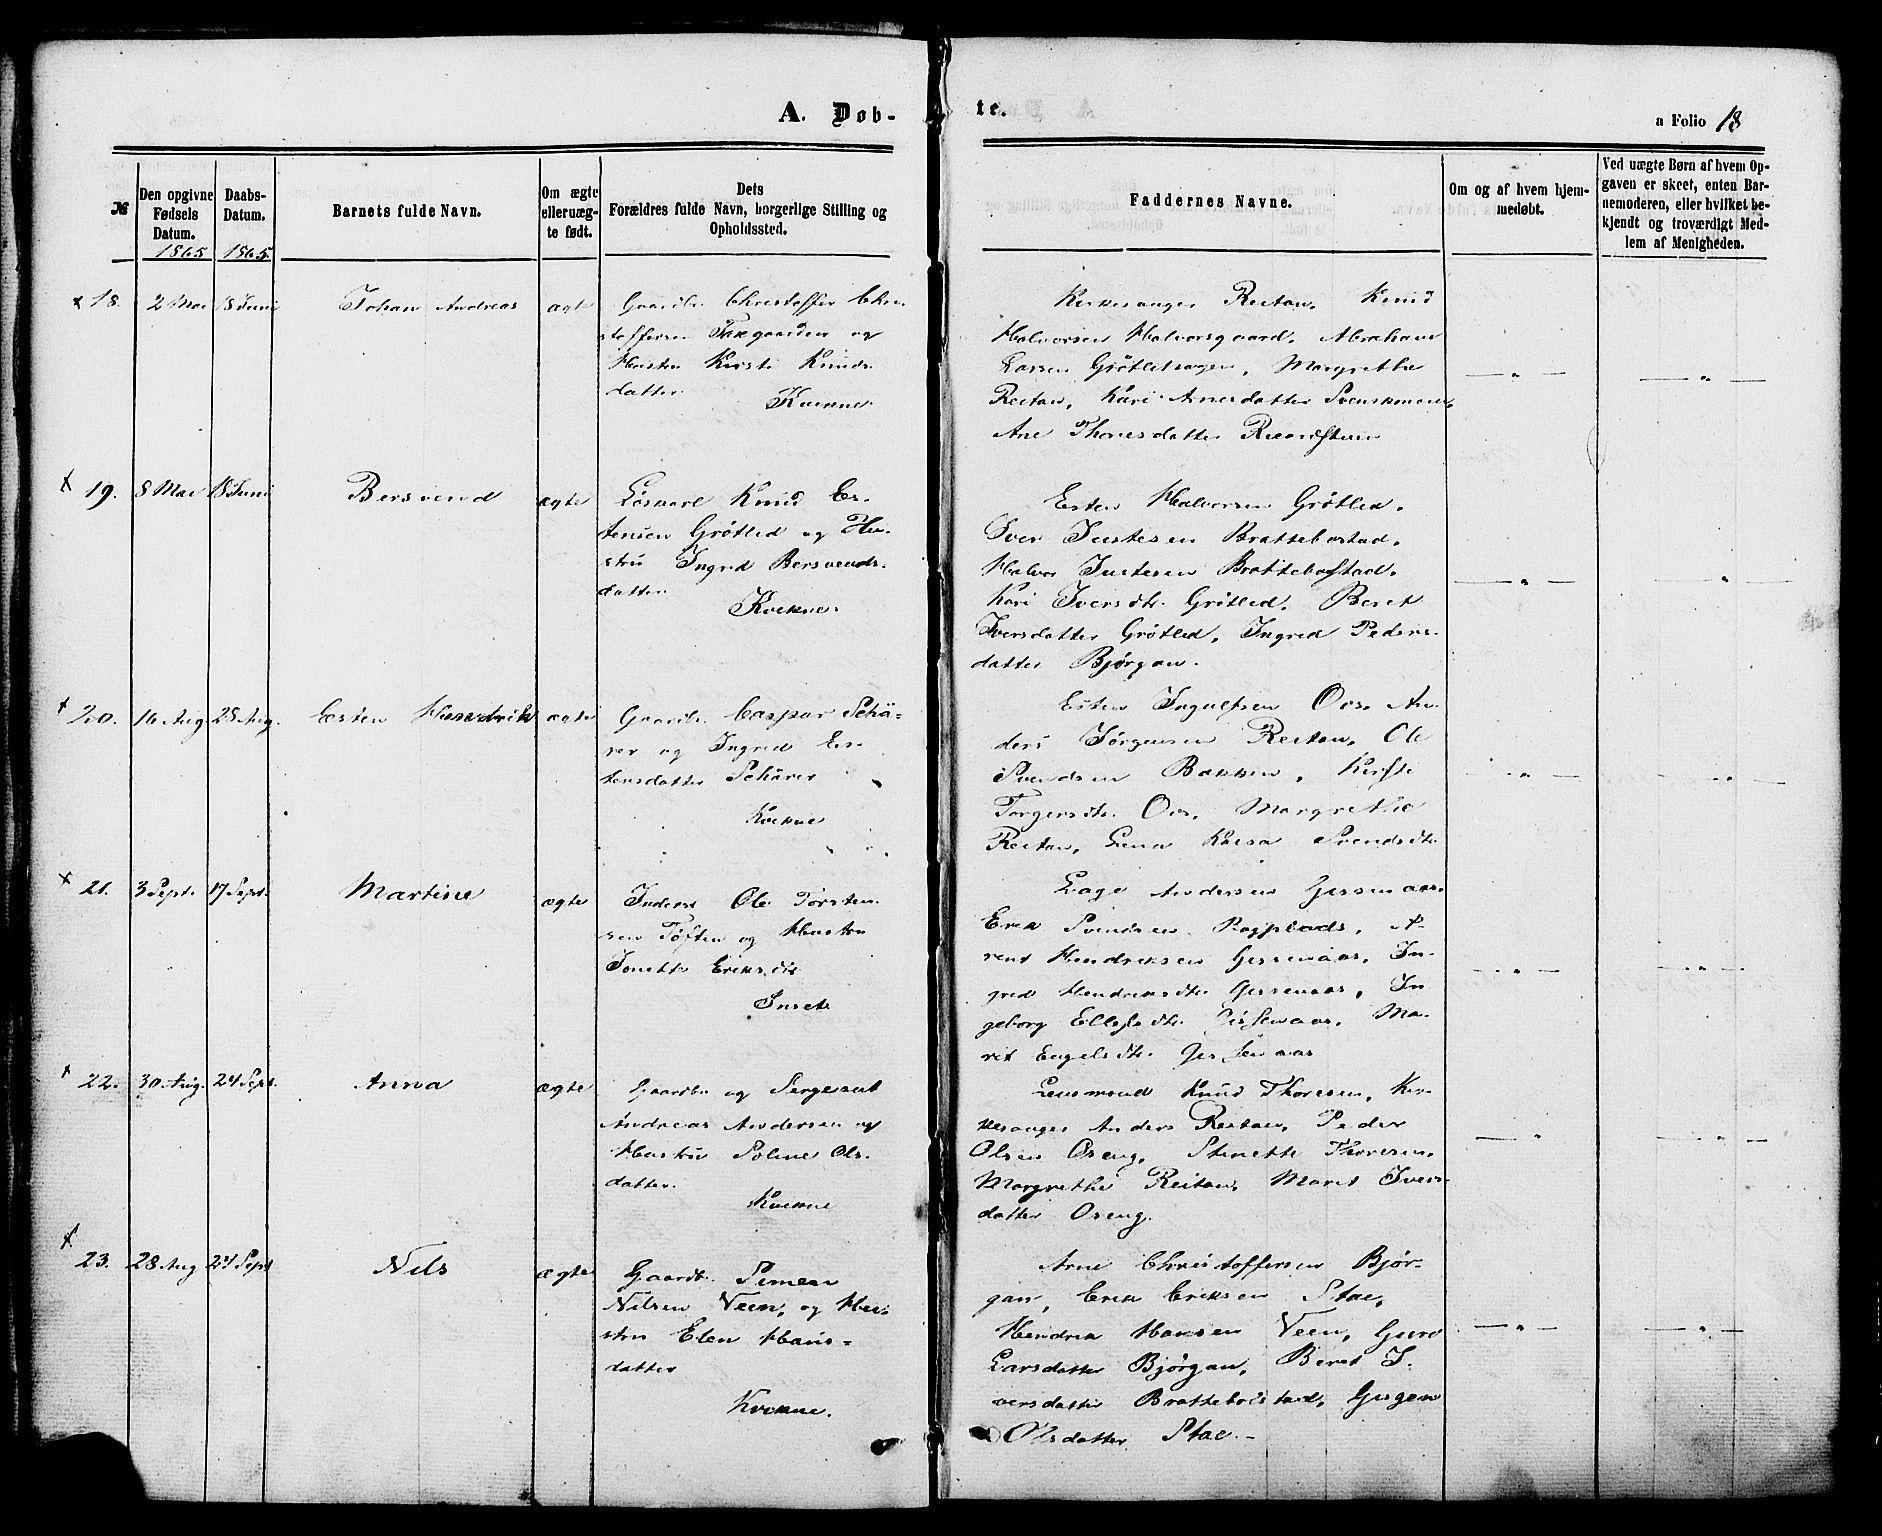 A. Døb-
te.
a Folio 18
№
Den opgivne
Fødsels
Datum.
1865
Daabs-
Datum.
1865.
Barnets fulde Navn.
Om ægte
eller uæg-
te født.
Dets
Forældres fulde Navn, borgerlige Stilling og
Opholdssted.
Faddernes Navne.
Om og af hvem hjem-
medøbt.
Ved uægte Børn af hvem Op-
gaven er skeet, enten Bar-
nemoderen, eller hvilket be-
kjendt og troværdigt Med-
lem af Menigheden.
x 18. 2 Mai 18 Juni Johan Andreas ægte
Gaardbr. Christoffer Chri-
stoffersen Faxgaarden og
Hustru Kirsti Knuds-
datter.
Kvikne.
Kirkesanger Reitan, Knud
Halvorsen Halvorsgaard, Abraham
Larsen, Margrethe
Reitan, Kari Arnesdatter
Ane Thoresdatter
x 19. 8 Mai 18 Juni Bersvend ægte
Løskarl Knud Es-
tensen Grøtled og Hu-
stru Ingrid Bersvends-
datter.
Kvikne.
Esten Halvorsen Grøtled.
Iver Justesen Brattebostad.
Halvor Justesen Brattebostad.
Kari Iversdtr. Grøtled. Beret
Iversdatter Grøtled, Ingrid Peders-
datter Bjørgan.
x 20. 16 Aug 28 Aug. Esten Hendrik ægte
Gaardbr. Caspar Schä-
rer og Ingrid Es-
tensdatter Schärer
Kvikne
Esten Ingulfsen Oos, An-
ders Jørgensen Reitan, Ole
Svendsen Bakken, Kirsti
Torgersdtr. Oos, Margrethe
Reitan, Lena Kaisa Svendsdtr.
x 21. 3 Sept. 17 Sept. Martine ægte
Inderst Ole Torsten-
sen Tøften og Hustru
Jonette Eriksdtr
Inset.
Lage Andersen Gjersenaas.
Erik Svendsen Rogplads, A-
rent Hendriksen Gjersenaas, In-
grid Hendriksdtr Gjersenaas, In
geborg Ellefsdtr. Gjersenaas, Ma-
rit Engelsdtr. Gjersenaas
x 22. 30. Aug. 24 Sept. Anna ægte
Gaardbr og Sergeant
Andreas Andersen og
Hustru Poline Ols-
datter.
Kvikne
Lensmand Knud Thoresen, Kir-
kesanger Anders Reitan, Peder
Olsen Oseng, Stinette Thoresen,
Margrethe Reitan, Marit Ivers-
datter Oseng.
x 23. 28 Aug 24 Sept Nils ægte
Gaardbr. Simen
Nilsen Veen, og Hu-
stru Elen Hans-
datter
Kvikne.
Arne Christoffersen Bjør-
gan, Erik Eriksen Stae,
Hendrik Hansen Veen, Guro
Larsdatter Bjørgan, Beret I-
versdatter Brattebolstad,
Olsdatter Stae.-